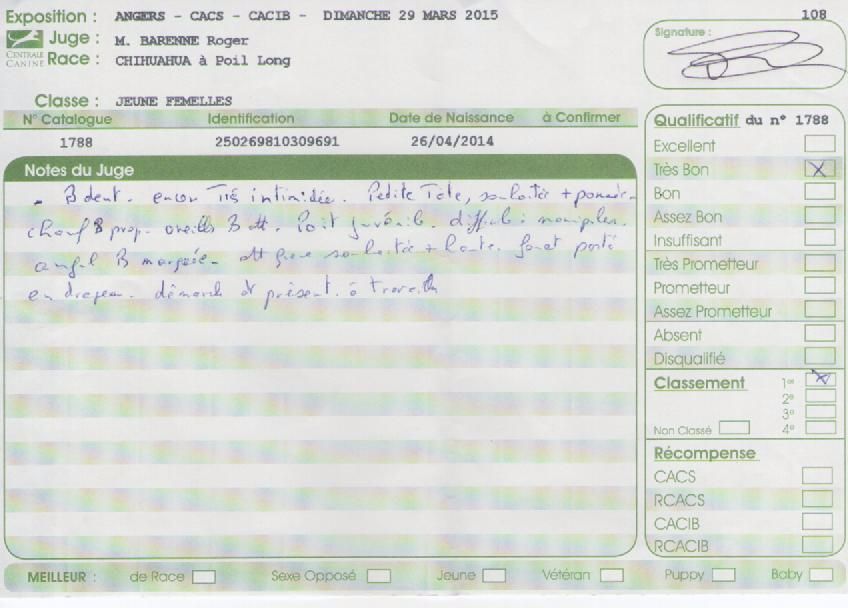 Exposition : ANGERS - CACS - CACIB - DIMANCHE 29 MARS 2015 108
CENTRALE CANINE
Juge : M. BARENNE Roger
Race : CHIHUAHUA à Poil Long
Signature :
Classe : JEUNE FEMELLES
N° Catalogue Identification Date de Naissance à Confirmer
1788 250269810309691 26/04/2014
Notes du Juge
B dent. encor Très intimidée. Petite Tête, souhaitée +
B prop. oreilles B att. Poil juvénile. difficile à manipuler.
angul B marquée. souhaitée + haute. fouet porté
en drapeau. démarche et présent. à travailler
Qualificatif du n° 1788
Excellent
Très Bon X
Bon
Assez Bon
Insuffisant
Très Prometteur
Prometteur
Assez Prometteur
Absent
Disqualifié
Classement 1er X
2e
3e
Non Classé 4e
Récompense
CACS
RCACS
CACIB
RCACIB
MEILLEUR : de Race Sexe Opposé Jeune Vétéran Puppy Baby